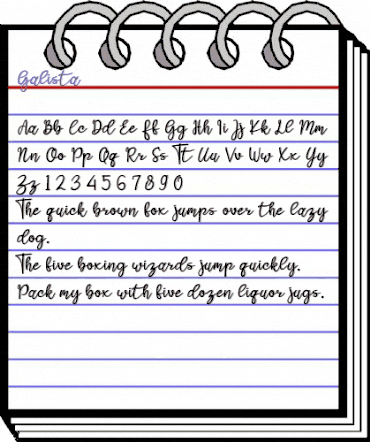 Galista
Aa Bb Cc Dd Ee Ff Gg Hh Ii Jj Kk Ll Mm
Nn Oo Pp Qq Rr Ss Tt Uu Vv Ww Xx Yy
Zz 1 2 3 4 5 6 7 8 9 0
The quick brown fox jumps over the lazy
dog.
The five boxing wizards jump quickly.
Pack my box with five dozen liquor jugs.